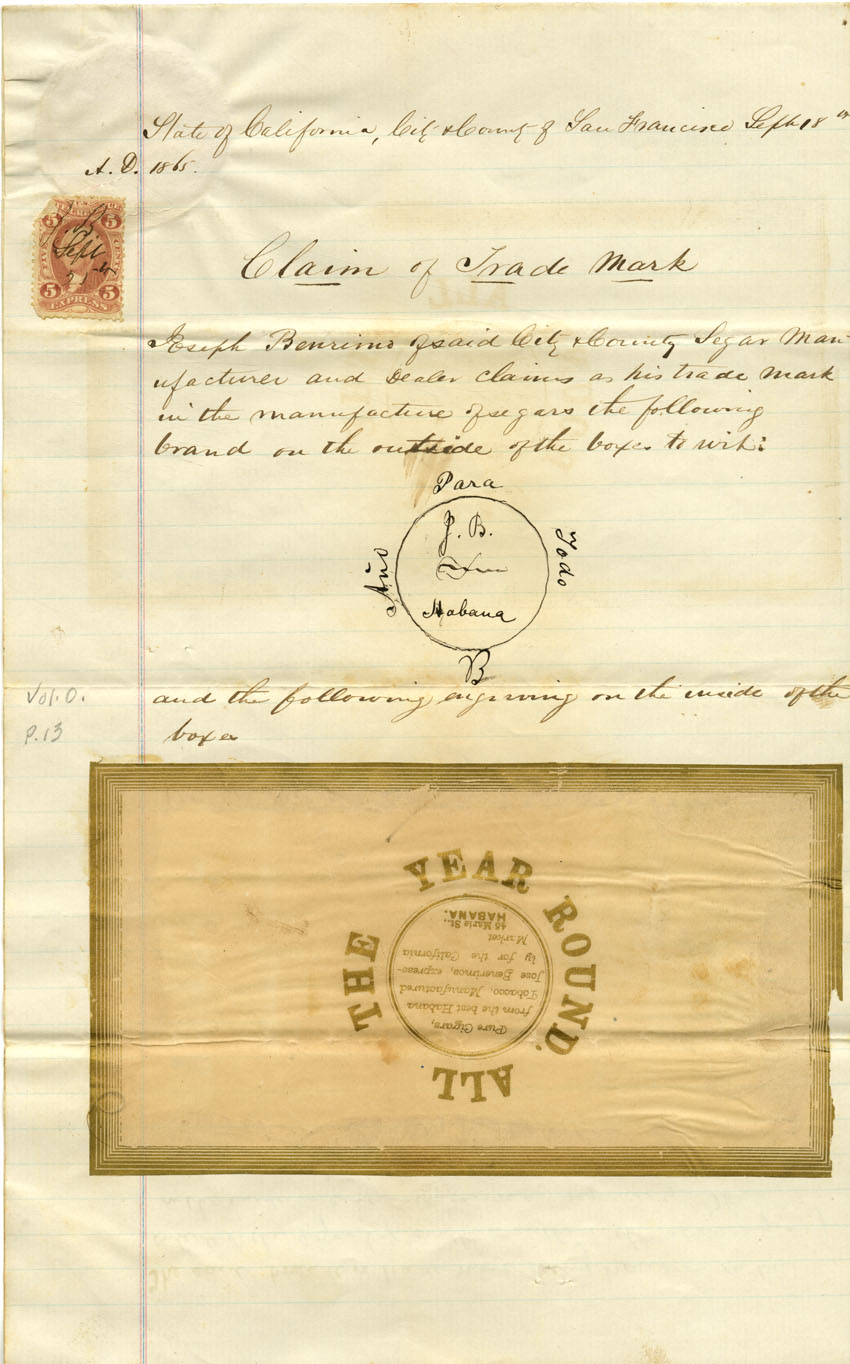 State of California, City & County of San Francisco Sept 18th
A. D. 1865.
5 5
J B
Sept
21st
5 5
EXPRESS
Claim of Trade Mark
Joseph Benrimo of said City & County Segar Man-
ufacturer and Dealer claims as his trade mark
in the manufacture of segars the following
brand on the outside of the boxes to wit:
Para
Todo
Año
J. B.
Habana
B
and the following engraving on the inside of the
boxes
Vol. O.
p. 13
ALL THE YEAR ROUND.
Pure Cigars,
from the best Habana
Tobacco. Manufactured
Jose Benerimos, express-
ly for the California
Market
HABANA.